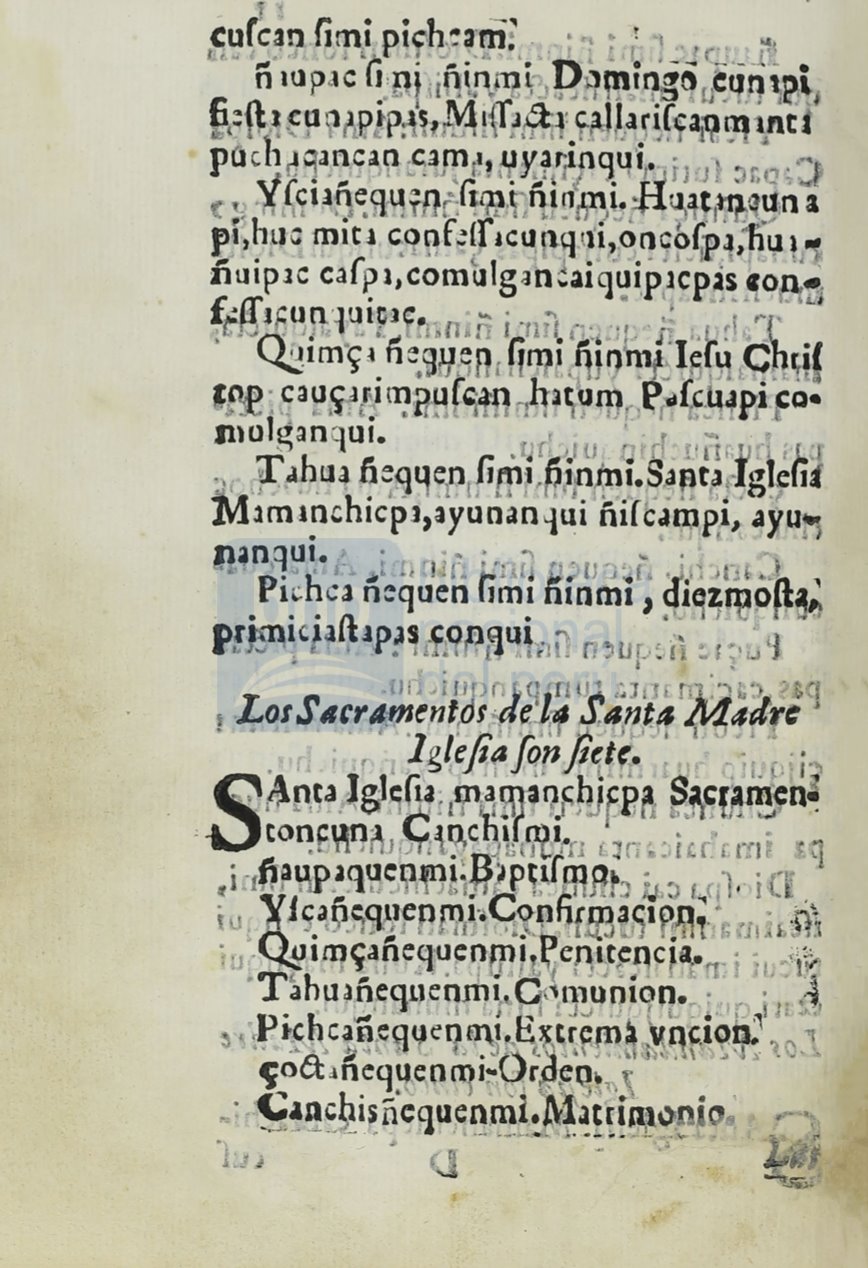 cuſcan ſimi pichcam.
ñaupac ſimi ñinmi Domingo cunapi,
fieſta cunapipas, Miſſacta callariſcanmanta
puchucancan cama, uyarinqui.
Yſciañequen ſimi ñinmi. Huatancuna
pi, huc mita confeſſacunqui, oncoſpa, hua-
ñuipac caſpa, comulgancaiquipacpas con-
feſſacunquitac.
Quimça ñequen ſimi ñinmi Ieſu Chriſ
top cauçarimpuſcan hatum Paſcuapi co-
mulganqui.
Tahua ñequen ſimi ñinmi. Santa Igleſia
Mamanchicpa, ayunanqui ñiſcampi, ayu-
nanqui.
Pichca ñequen ſimi ñinmi, diezmoſta,
primiciaſtapas conqui
Los Sacramentos de la Santa Madre
Igleſia ſon ſiete.
SAnta Igleſia mamanchicpa Sacramen-
toncuna Canchiſmi.
ñaupaquenmi. Baptiſmo.
Yſcañequenmi. Confirmacion.
Quimçañequenmi. Penitencia.
Tahuañequenmi. Comunion.
Pichcañequenmi. Extrema vncion.
çoctañequenmi-Orden.
Canchisñequenmi. Matrimonio.
Las